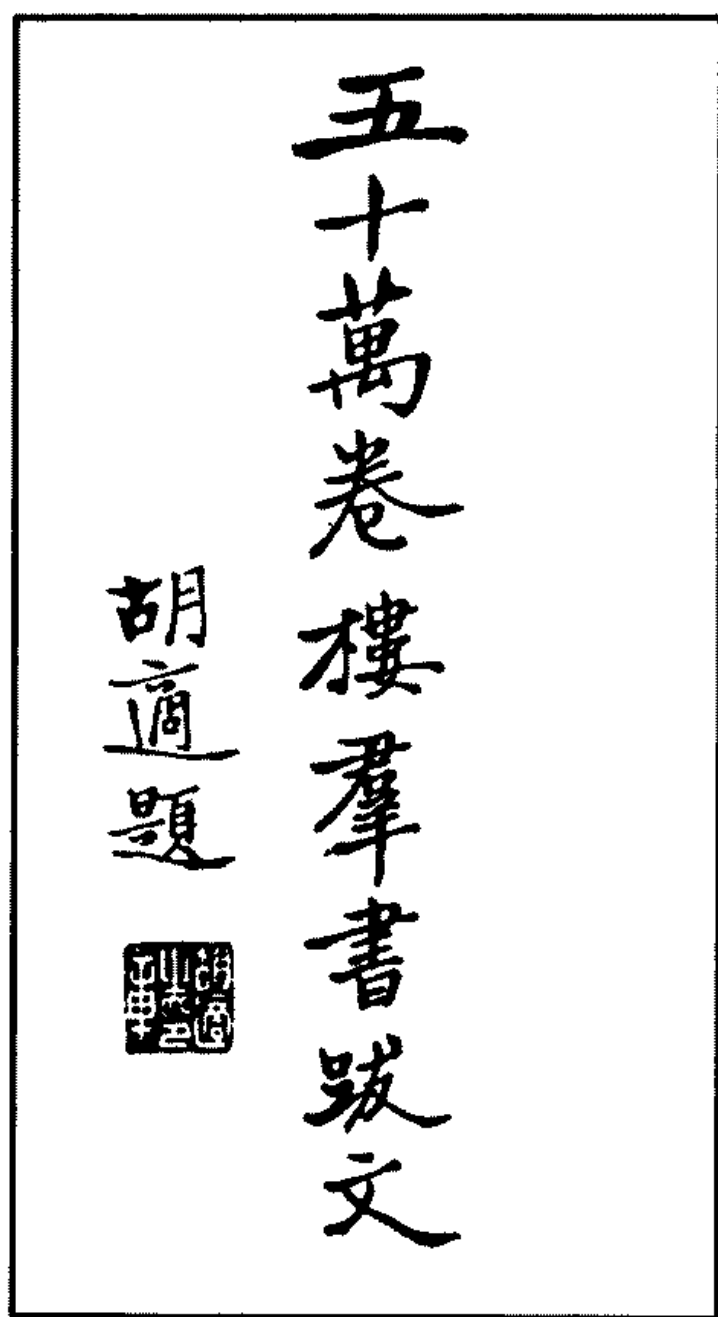 五十萬卷樓羣書跋文
胡適題